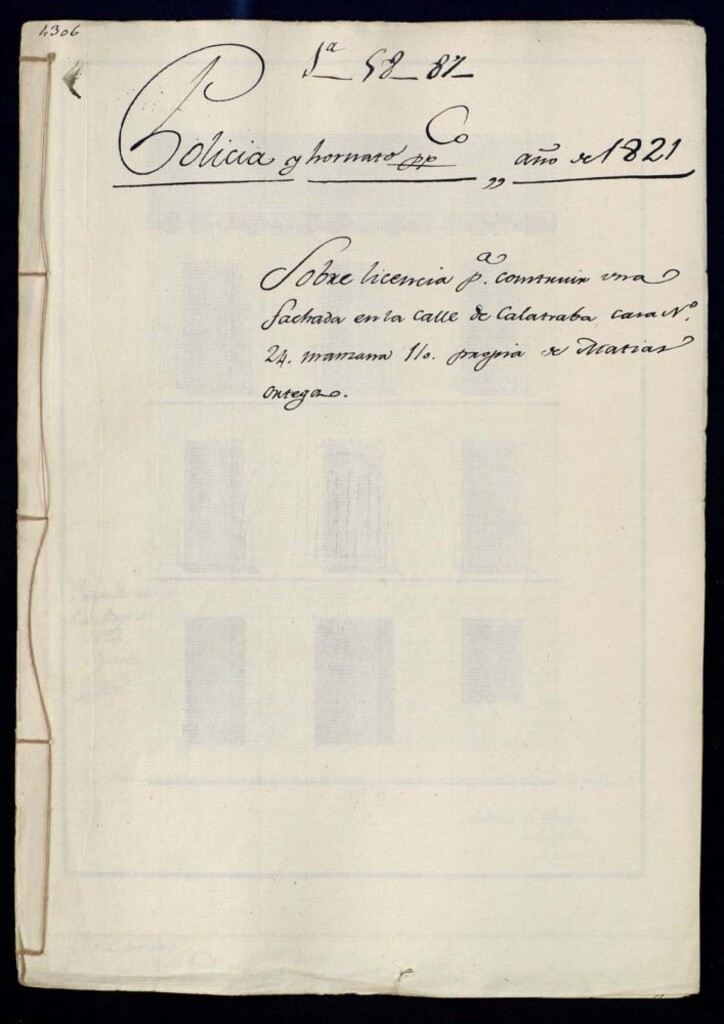 4306
1ª 58 87
Policia y hornato pp.co „ año de 1821
Sobre licencia p.a construir una
fachada en la calle de Calatraba casa N.o
24. manzana 110. propia de Matias
Ortega.